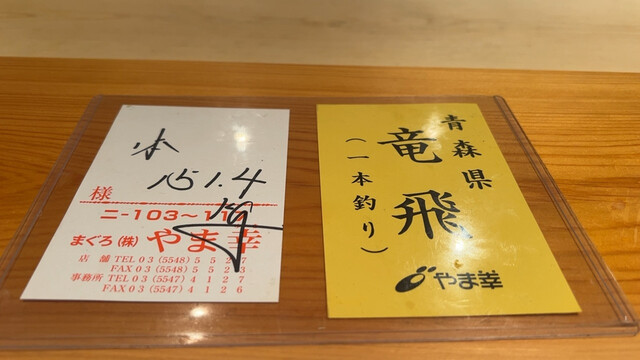 本
151.4
様
ニ-103~11
まぐろ(株) やま幸
店舗 TEL 03 (5548) 5 5 2 7
FAX 03 (5548) 5 5 2 3
事務所 TEL 03 (5547) 4 1 2 7
FAX 03 (5547) 4 1 2 6
青森県
竜飛
(一本釣り)
やま幸